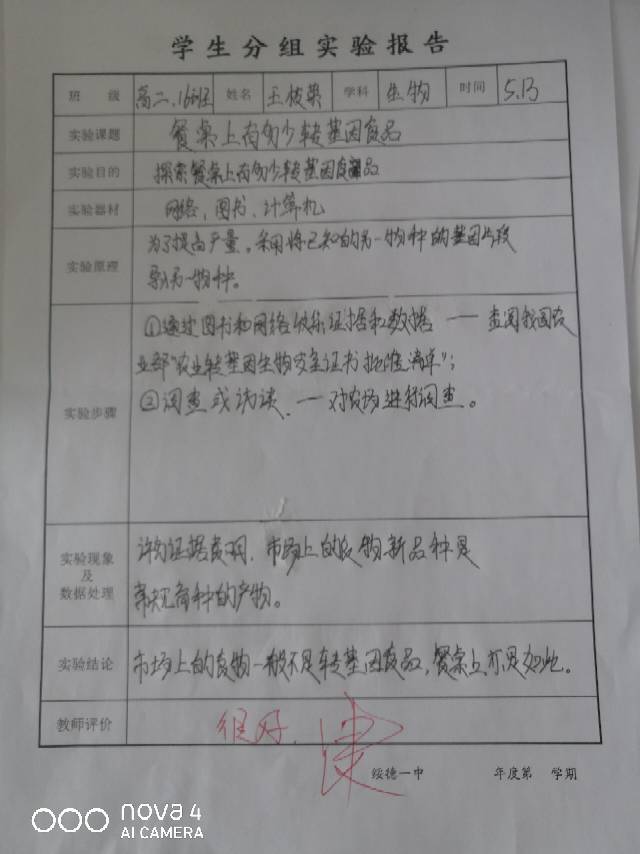 学生分组实验报告
班 级 高二.16班 姓名 王枝染 学科 生物 时间 5.13
实验课题 餐桌上有多少转基因食品
实验目的 探索餐桌上有多少转基因食品
实验器材 网络、图书、计算机
实验原理 为了提高产量,采用将已知的另一物种的基因片段
导入另一物种。
实验步骤
①通过图书和网络收集证据和数据 —— 查阅我国农
业部"农业转基因生物安全证书批准清单";
②调查或访谈、— 对农场进行调查。
实验现象
及
数据处理
许多证据表明,市场上的食物新品种是
常规育种的产物。
实验结论 市场上的食物一般不是转基因食品,餐桌上亦是如此。
教师评价 很好.
绥德一中 年度第 学期
nova 4
AI CAMERA